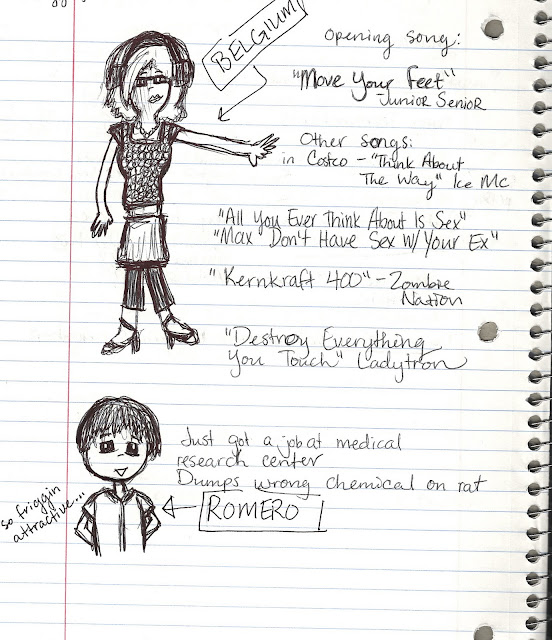 BELGIUM
Opening song:
"Move Your Feet"
-Junior Senior
Other songs:
in Costco - "Think About
The Way" Ice Mc
"All You Ever Think About Is Sex"
"Max Don't Have Sex w/ Your Ex"
"Kernkraft 400" - Zombie
Nation
"Destroy Everything
You Touch" Ladytron
Just got a job at medical
research center
Dumps wrong chemical on rat
ROMERO
so friggin
attractive...